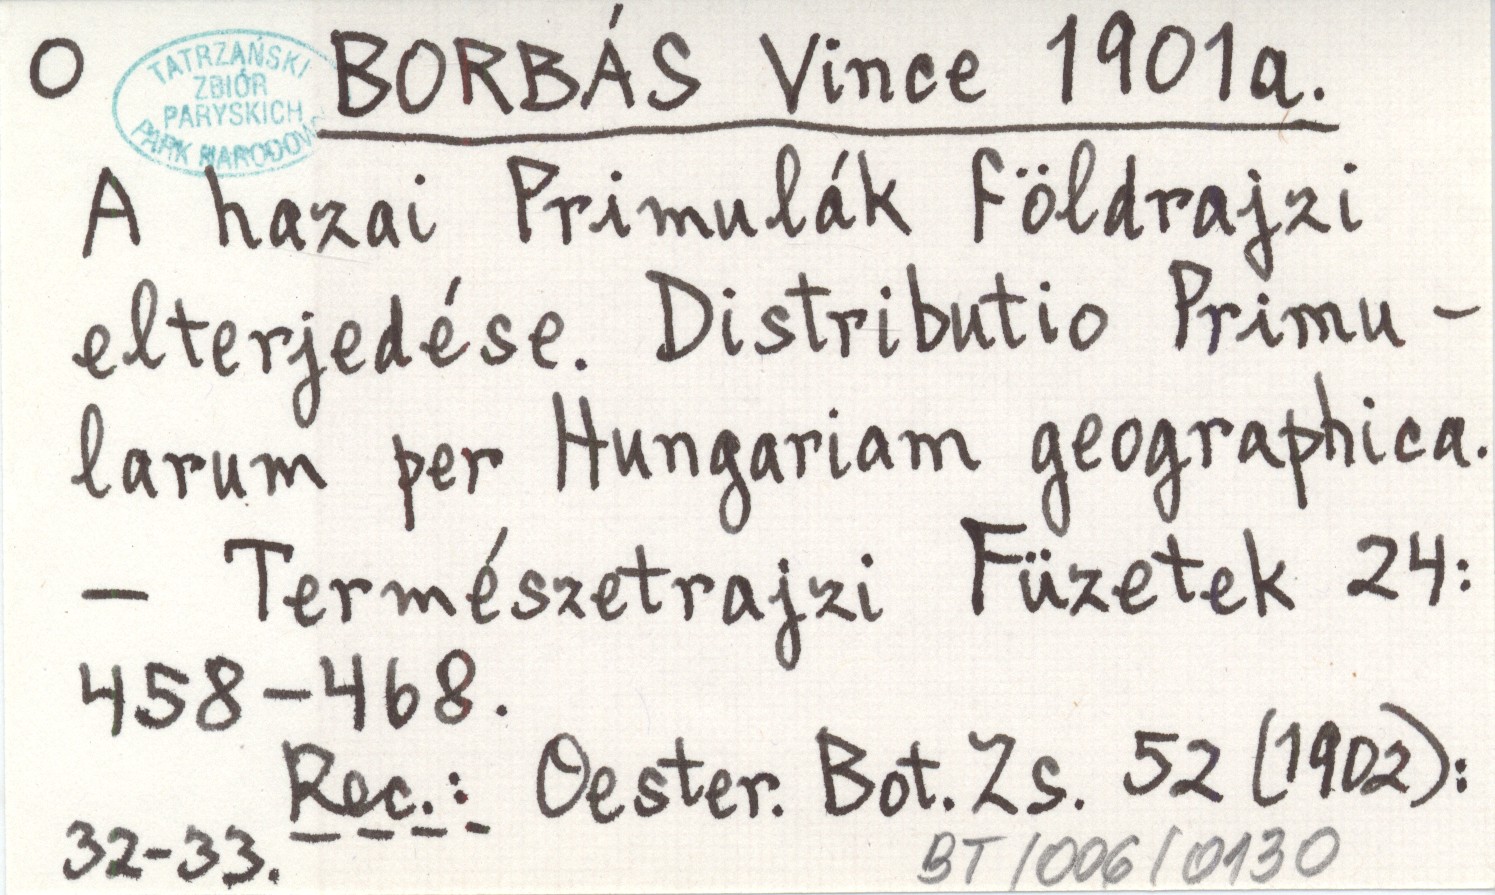 O BORBÁS Vince 1901a.
TATRZAŃSKI
ZBIÓR
PARYSKICH
PARK NARODOWY
A hazai Primulák Földrajzi
elterjedése. Distributio Primu-
larum per Hungariam geographica.
— Természetrajzi Füzetek 24:
458-468.
Rec.: Oester. Bot. Zs. 52 (1902):
32-33.
BT/006/0130